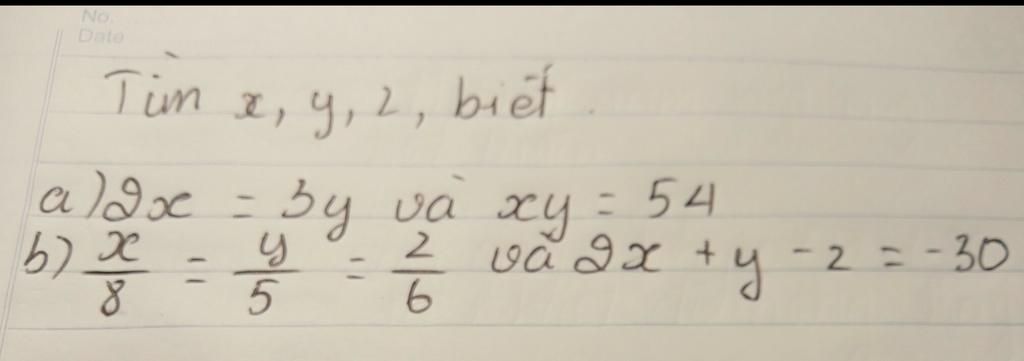 No.
Date
Tìm x, y, z, biết.
a) 2x = 3y và xy = 54
b) x/8 = y/5 = z/6 và 2x + y - z = -30